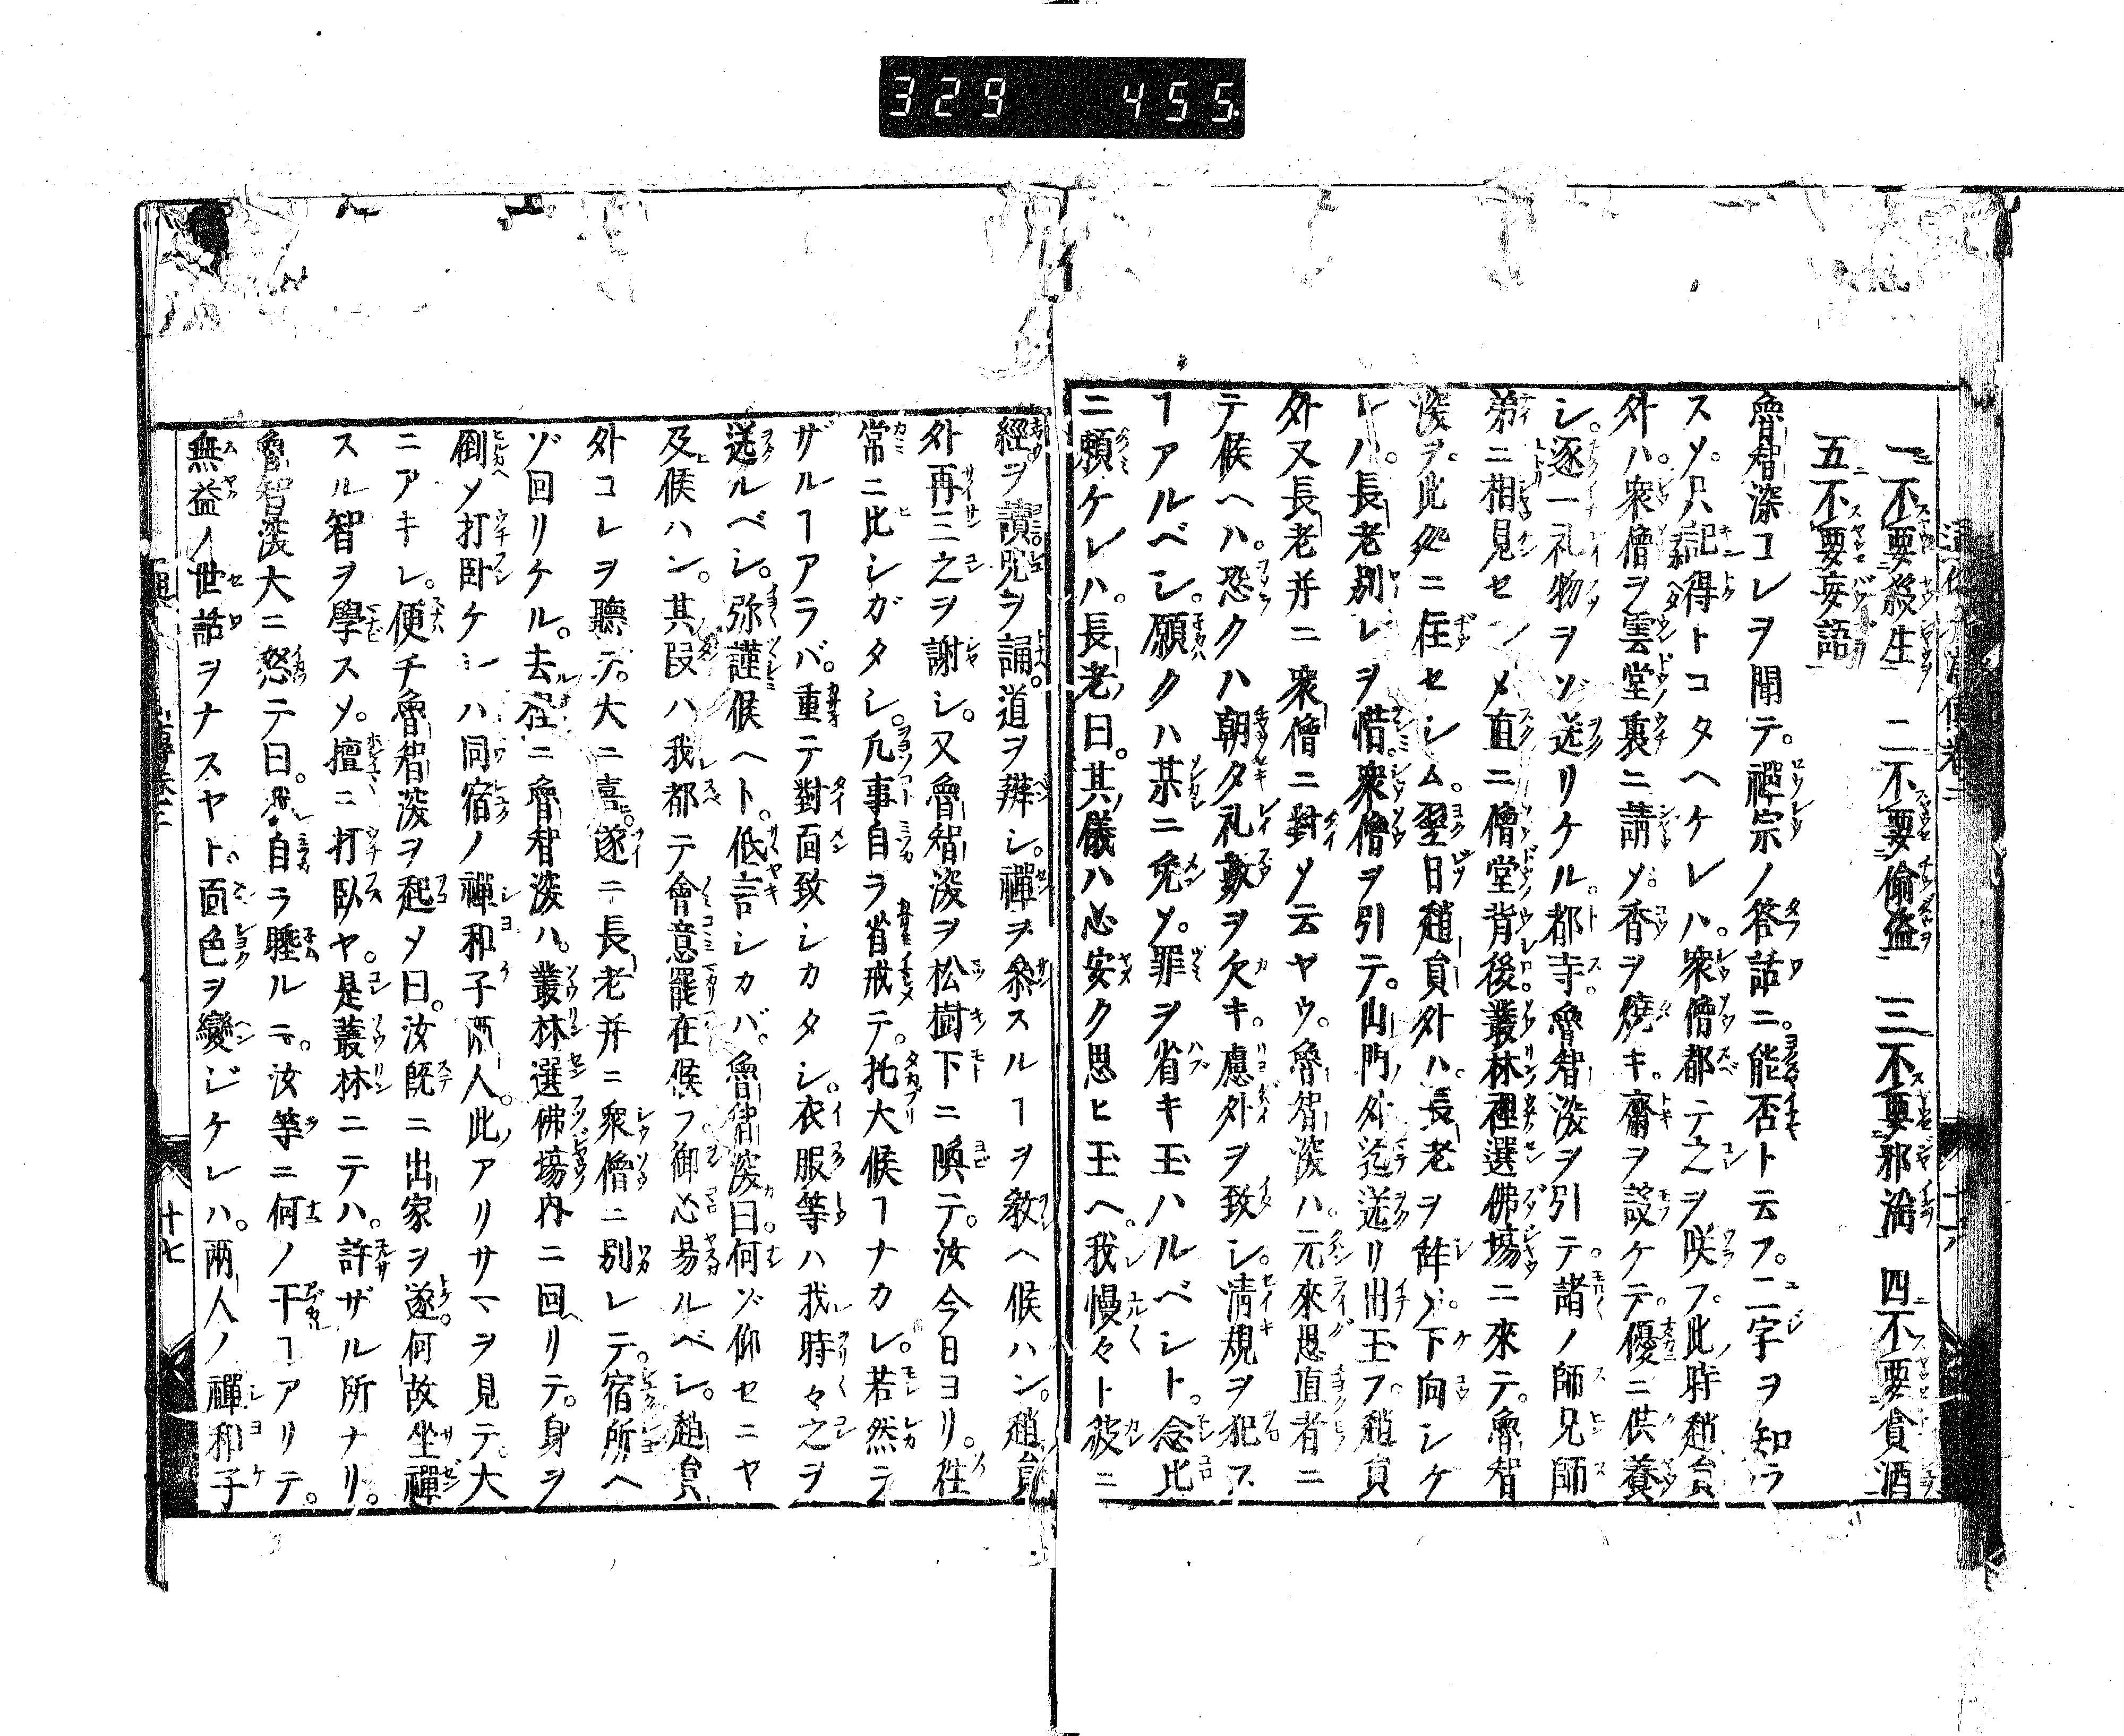 329 455
一不要殺生 二不要偷盗 三不要邪淫 四不要貪酒
五不要妄語
魯智深コレヲ聞テ。禪宗ノ答話ニ。能否ト云フ。二字ヲ知ラ
スメ。只記得トコタヘケレハ。衆僧都テ之ヲ咲フ。此時趙員
外ハ。衆僧ヲ雲堂裏ニ請メ。香ヲ燒キ。齋ヲ設ケテ。優ニ供養
シ。逐一礼物ヲゾ送リケル。都寺。魯智深ヲ引テ。諸ノ師兄師
弟ニ相見セシメ直ニ僧堂背後。叢林裡選佛場ニ來テ。魯智
深ヲ。此処ニ住セシム。翌日趙員外ハ。長老ヲ辞メ。下向シケ
レハ。長老別レヲ惜ミ。衆僧ヲ引テ。山門外迄送リ出玉フ。趙員
外又長老并ニ衆僧ニ對メ云ヤウ。魯智深ハ。元來愚直者ニ
テ候ヘハ。恐クハ朝夕礼數ヲ欠キ。慮外ヲ致シ。清規ヲ犯ス
ヿアルベシ。願クハ某ニ免メ。罪ヲ省キ玉ハルベシト。念比
ニ頼ケレハ。長老曰。其儀ハ心安ク思ヒ玉ヘ。我慢々ト彼ニ
經ヲ讀呪ヲ誦。道ヲ辨シ。禪ヲ參スルヿヲ教ヘ候ハン。趙員
外再三之ヲ謝シ。又魯智深ヲ松樹下ニ喚テ。汝今日ヨリ。徃
常ニ比シガタシ。凢事自ラ省戒テ。托大候ヿナカレ。若然ラ
ザルヿアラバ。重テ對面致シカタシ。衣服等ハ我時々之ヲ
送ルベシ。弥謹候ヘト。低言シカバ。魯智深曰。何ゾ仰セニヤ
及候ハン。其段ハ我都テ會意罷在候フ御心易ルベシ。趙員
外コレヲ聽テ。大ニ喜。遂ニ長老并ニ衆僧ニ別レテ。宿所ヘ
ゾ回リケル。去程ニ魯智深ハ。叢林選佛塲内ニ回リテ。身ヲ
倒メ打卧ケレハ同宿ノ禪和子兩人。此アリサマヲ見テ。大
ニアキレ。便チ魯智深ヲ起メ曰。汝既ニ出家ヲ遂。何故坐禪
スル智ヲ學スメ。擅ニ打臥ヤ。是叢林ニテハ。許ザル所ナリ。
魯智深大ニ怒テ曰。我自ラ睡ルニ。汝等ニ何ノ干ヿアリテ。
無益ノ世話ヲナスヤト。面色ヲ變ジケレハ。兩人ノ禪和子
十七